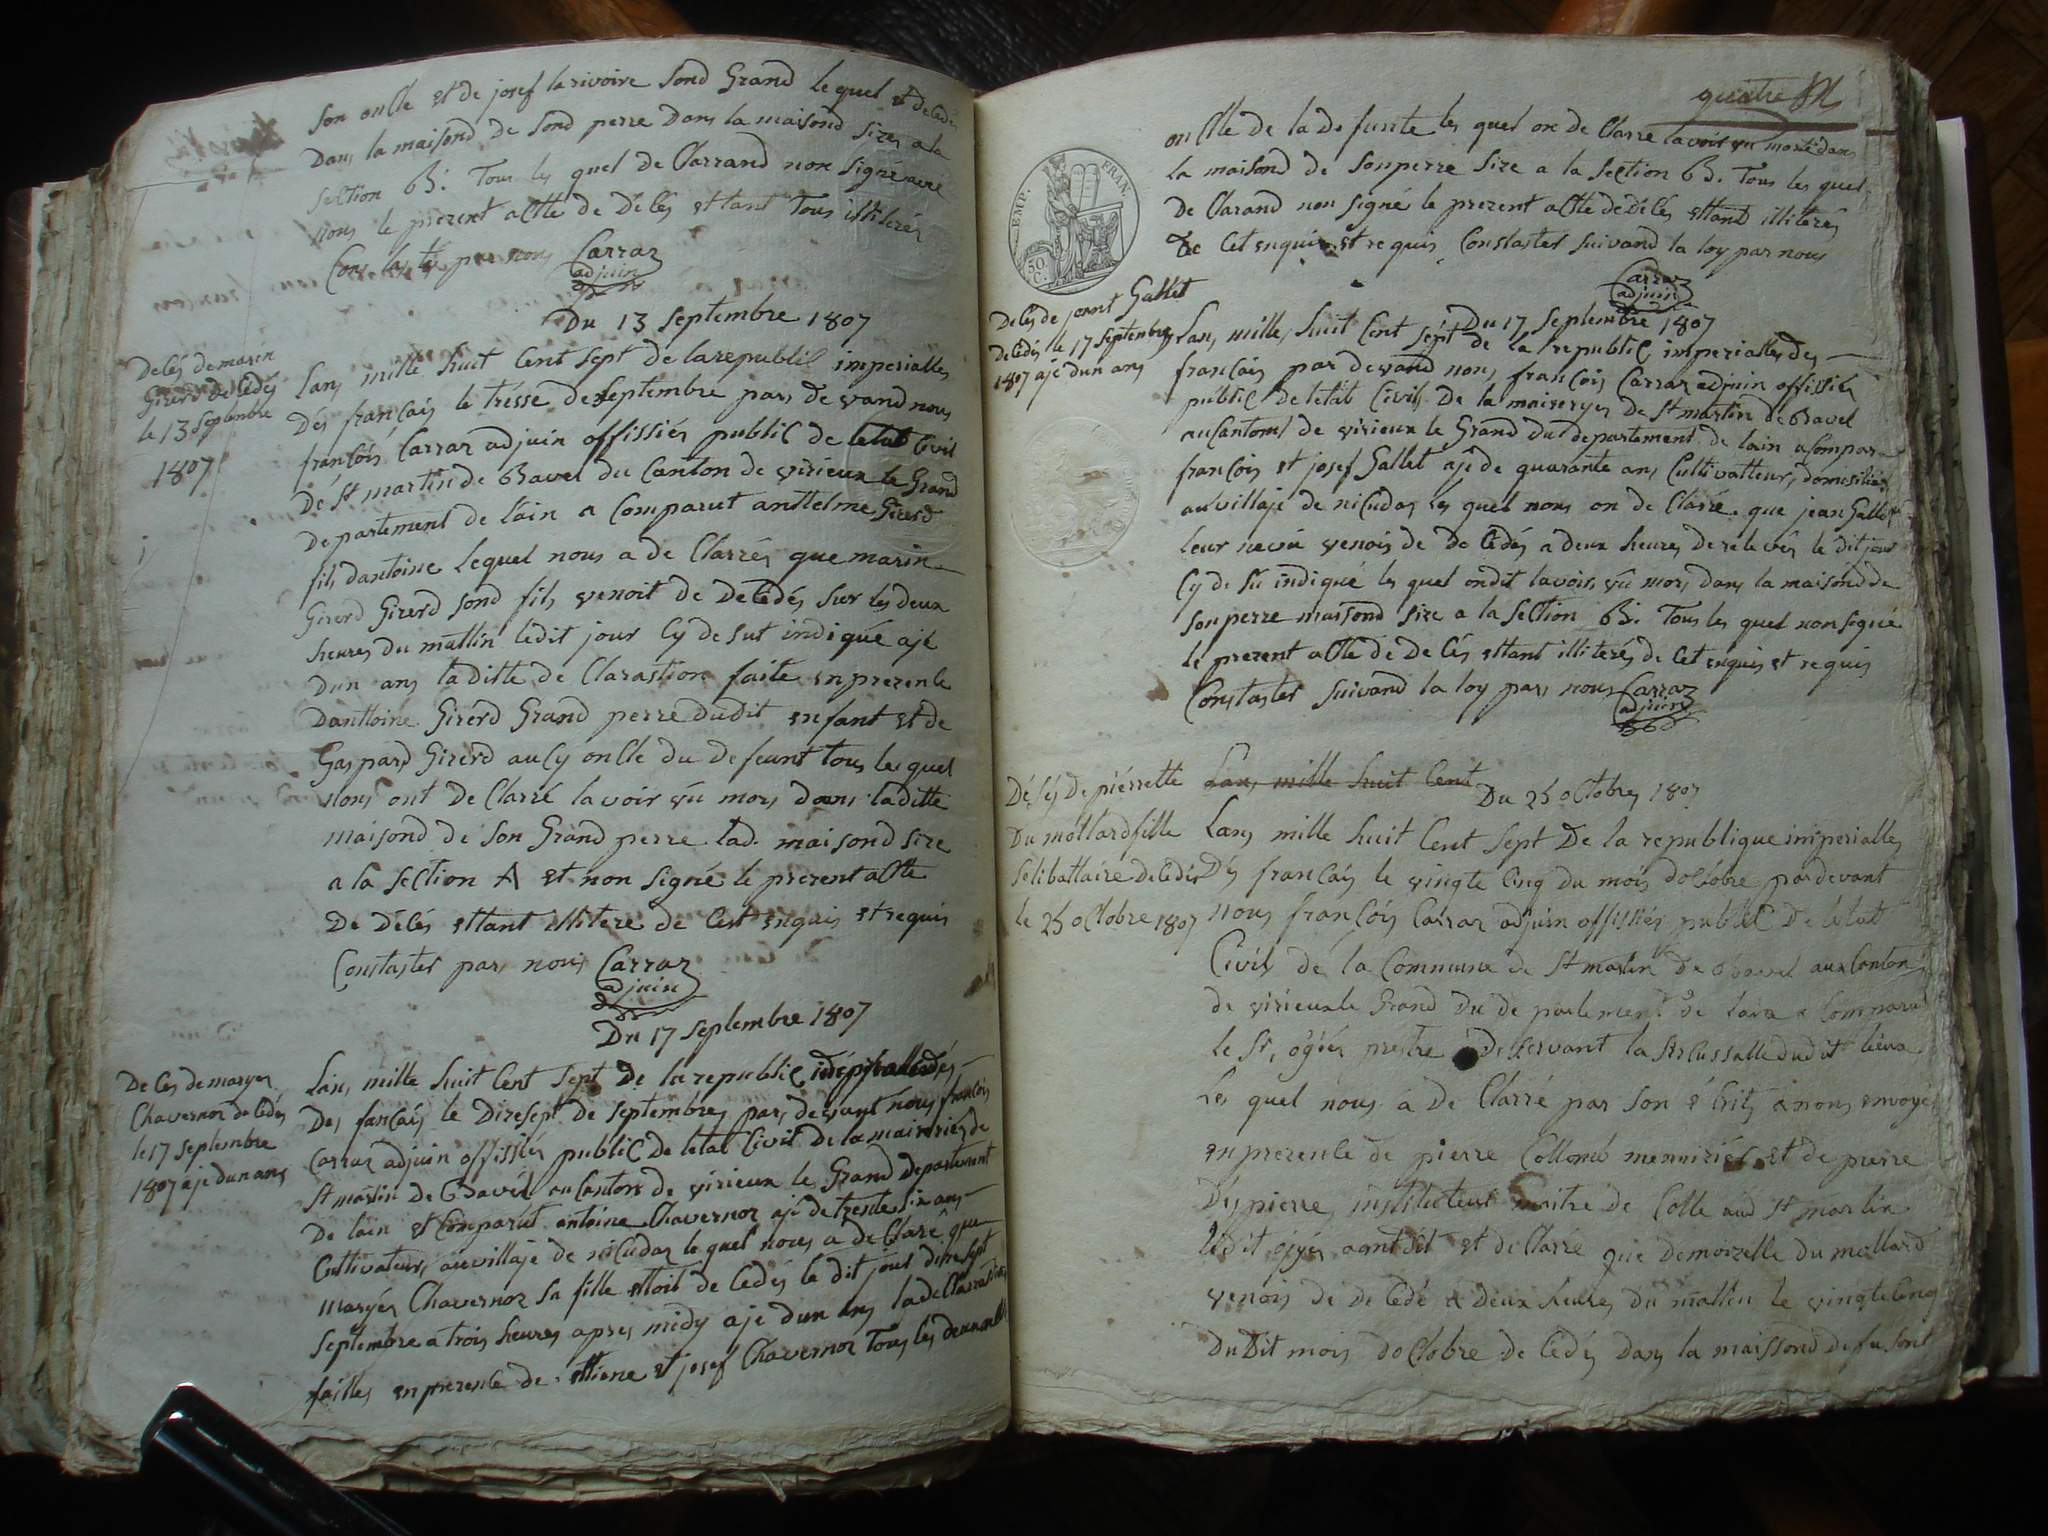 son onCle et de josef larivoire sond Grand lequel et deCedés
Dans la maisond de sond perre Dans la maisond sizes a la
section B: Tous les quel de Clarrand non signé avec
nous le prezent aCtte de Déles ettant Tous illiterés
Constasté par nous Carraz
adjuin
Du 13 septembre 1807
Delés de marin
Girerd deCedés
le 13 septembre
1807
Lans mille huit Cent sept de la republiC imperialles
Dés francais le tresse de septembre pars de vand nous
francois Carraz adjuin offissiés publiC de letat Civil
De st martin de Bavel du Canton de virieux le Grand
departement de lain a Comparut anttelme Girerd
fils dantoine Lequel nous a de Clarrés que marin
Girerd Girerd sond fils venoit de deCédés sur les deux
heures du mattin ledit jour Cy de sut indiqué ajé
Dun ans laditte de Clarastion faite en prezenCe
Danttoine Girerd Grand perre dudit enfant et de
Gaspard Girerd auCy onCle du defeunt tous les quel
nous ont de Clarré lavoir vu mors dans laditte
maisond de son Grand perre lad. maisond size
a la section A et non signé le prezent aCtte
De Déles ettant illitere de Cest enquis et requis
Constaster pars nous Carraz
adjuin
Du 17 septembre 1807
De Ces de maryes
Chavernoz deCedés
le 17 septembre
1807 aje dun ans
Lans mille huit Cent sept De la republiC
Des fancais le Diresept de septembres pars devant nous francois
Carraz adjuin offissiés publiC de letat Civil de la maireries de
St martin De Bavel au Canton de virieux le Grand departement
De lain et Comparut antoine Chavernoz ajé de trente six ans
Cultivateurs au villaje de niCudaz le quel nous a de Claré que
maryés Chavernoz sa fille ettoit de Cedés le dit jour diresept
septembre a trois heures apres midy aje dun ans la deClarration
faittes en prezenCe de ettiene et josef Chavernoz Tous les
quatre
EMP. FRAN.
50 C.
onCtle de la de funte les quel on de Clarre lavoir vu morte dans
la maisond de son perre size a la section B. Tous les quel
de Clarand non signé le prezent aCtte de Déles ettant illiterés
de Cet enquis et requis Constaster suivand la loy par nous
Carraz
adjuin
Delés de joant Gallet
deCedés le 17 septembre
1807 ajé dun ans
Du 17 septembre 1807
Lans mille huit Cent sept de la republiC imperialles des
francais par devand nous francois Carraz adjuin offissiés
publiC de letat Civil De la maireryes de St martin de Bavel
au Canton de virieux le Grand du departement de lain a Compar
francois et josef Gallet ajé de quarante ans Cultivatteurs domisiliés
au villaje de niCudas les quel nous on de Clarré que jean Gallet
leur neveu venois de de Cedés a deux heures de relevés le dit jour
Cy de su indiqué les quel ondit lavoir vu mors dans la maisond de
son perre maisond size a la section B: Tous les quel non signé
le prezent aCtte de de Cés ettant illiterés de Cet enquis et requis
Constaster suivand la loy pars nous Carraz
adjuin
Déses De pierrette
Du mollard fille
selibattaire deCedés
le 25 oCtobre 1807
Lans mille huit Cent
Du 25 oCtobres 1807
Lans mille huit Cent sept De la republique imperialles
Dés francais le vingte Cinq du mois doCtobre par devant
nous francois Carraz adjuin offissiés publiC De letat
Civils de la Commune de St martin De Bavel aux Canton
de virieux le Grand du departement de lain a Comparut
le Sr. ogées prestre Desservant la suCussalle dudit lieux
Les quel nous a de Clarré par son éCrits a nous envoyés
en prezenCe de pierre Collomb mennisiés et de pierre
Dépierre instituteur maitre de Colle aud St martin
ledit ogyés aant dit et de Clarré que demoizelle du mollard
venois de de Cedé a deux heures du mattin le vingte Cinq
du Dit mois doCtobre de Cedés dans la maissond de fu sont